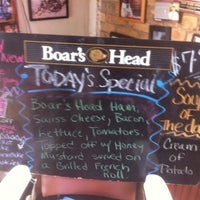 Boar's Head
TODAY's Special
Boar's Head Ham,
Swiss Cheese, Bacon
Lettuce, Tomatoes.
Topped off w/ Honey
Mustard served on
a Grilled French
Roll.
$7
Soup
of
The day
Cream
of
Potato